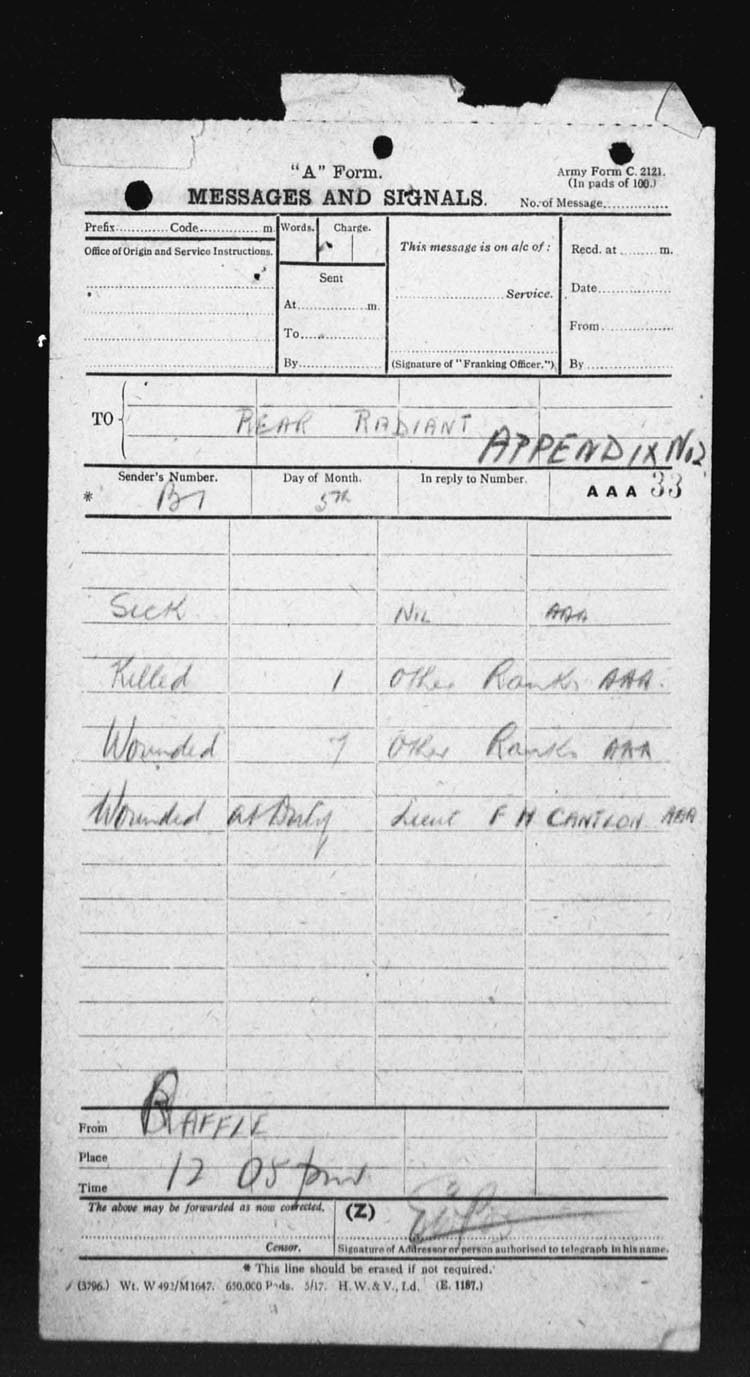 "A" Form.
Army Form C. 2121.
(In pads of 100.)
MESSAGES AND SIGNALS.
No. of Message............
Prefix............ Code............... m.
Words. Charge.
This message is on a/c of :
Recd. at ......... m.
Office of Origin and Service Instructions.
Sent
Date..................
At.................. m.
............................ Service.
To..................
From..................
By..................
(Signature of "Franking Officer.")
By..................
TO
REAR RADIANT
APPENDIX No 2
Sender's Number.
Day of Month.
In reply to Number.
AAA 33
*
5th
Sick Nil AAA
Killed 1 Other Ranks AAA.
Wounded 7 Other Ranks AAA
Wounded at Duty Lieut F H CANTLON AAA
From
Place
12 05 pm
Time
The above may be forwarded as now corrected.
(Z)
Censor.
Signature of Addressor or person authorised to telegraph in his name.
* This line should be erased if not required.
(3796.) Wt. W 492/M1647. 650,000 Pads. 5/17. H. W. & V., Ld. (E. 1187.)